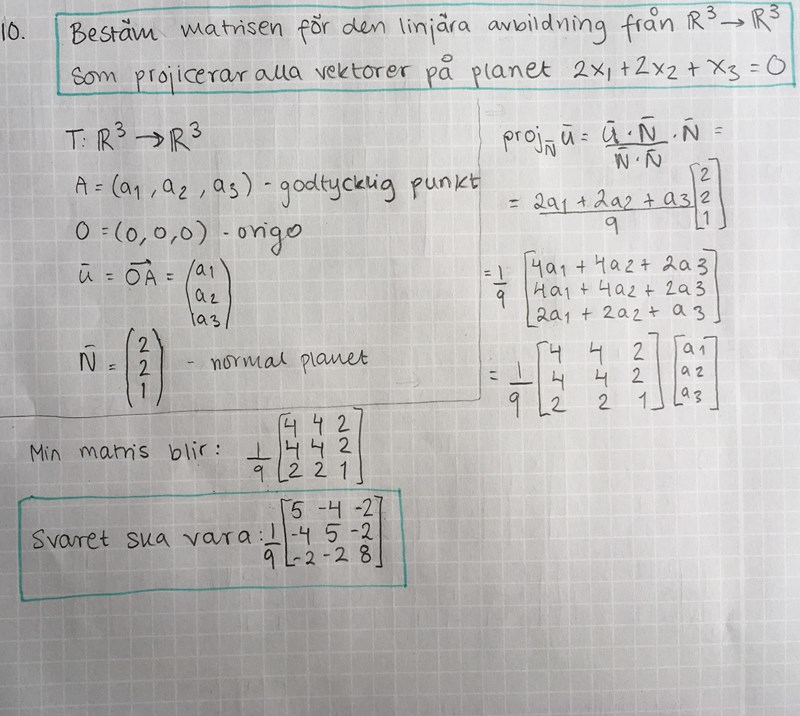 10. Bestäm matrisen för den linjära avbildning från ℝ³ → ℝ³
som projicerar alla vektorer på planet 2x₁ + 2x₂ + x₃ = 0
T: ℝ³ → ℝ³
A = (a₁, a₂, a₃) - godtycklig punkt
O = (0, 0, 0) - origo
ū = O⃗A = (a₁
a₂
a₃)
N̄ = (2
2
1) - normal planet
proj_N̄ ū = (ū · N̄)/(N̄ · N̄) · N̄ =
= (2a₁ + 2a₂ + a₃)/9 [2
2
1]
= 1/9 [4a₁ + 4a₂ + 2a₃
4a₁ + 4a₂ + 2a₃
2a₁ + 2a₂ + a₃]
= 1/9 [4 4 2
4 4 2
2 2 1] [a₁
a₂
a₃]
Min matris blir: 1/9 [4 4 2
4 4 2
2 2 1]
Svaret ska vara: 1/9 [5 -4 -2
-4 5 -2
-2 -2 8]